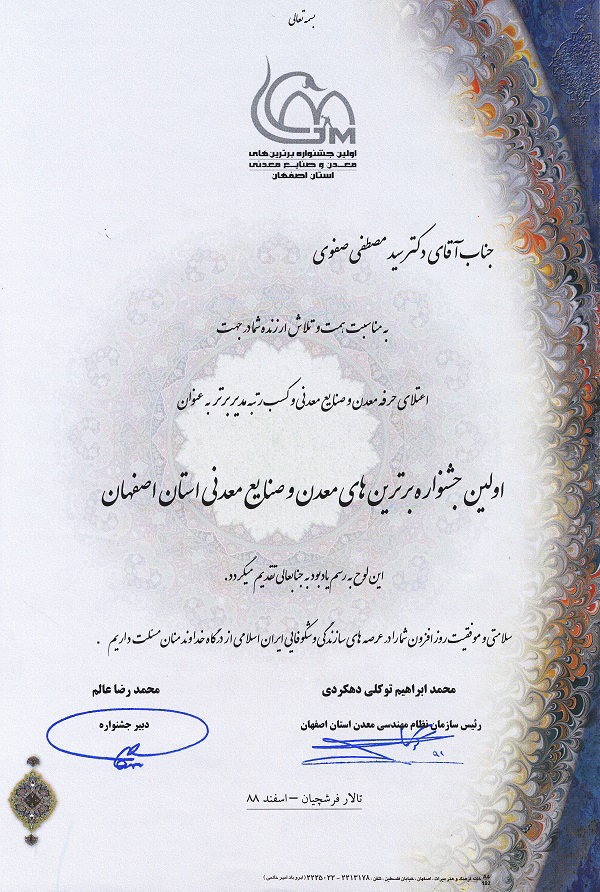 بسمه تعالی
اولین جشنواره برترین های
معدن و صنایع معدنی
استان اصفهان
جناب آقای دکتر سید مصطفی صفوی
به مناسبت همت و تلاش ارزنده شما در جهت
اعتلای حرفه معدن و صنایع معدنی و کسب رتبه مدیر برتر به عنوان
اولین جشنواره برترین های معدن و صنایع معدنی استان اصفهان
این لوح به رسم یادبود به جنابعالی تقدیم میگردد.
سلامتی و موفقیت روز افزون شما را در عرصه های سازندگی و شکوفایی ایران اسلامی از درگاه خداوند منان مسئلت داریم .
محمد ابراهیم توکلی دهکردی
رئیس سازمان نظام مهندسی معدن استان اصفهان
محمد رضا عالم
دبیر جشنواره
تالار فرشچیان – اسفند ۸۸
خانه فرهنگ و هنر میراث . اصفهان . خیابان فلسطین . تلفن : ۲۲۱۳۱۷۸ - ۲۲۲۵۰۲۲
A4